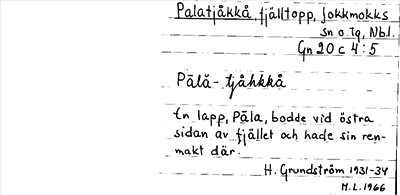 Palatjåkkå, fjälltopp, Jokkmokks
sn o. tg, Nbl.
Gn 20 C 4:5
Pālā-tjåhkkå
En lapp, Pāla, bodde vid östra
sidan av fjället och hade sin ren-
makt där.
H. Grundström 1931-34
M.L. 1966